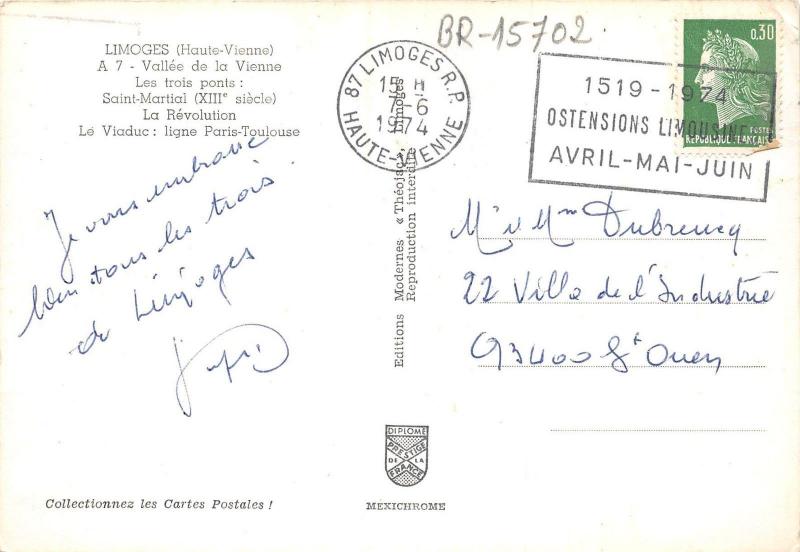 BR-15702
LIMOGES (Haute-Vienne)
A 7 - Vallée de la Vienne
Les trois ponts :
Saint-Martial (XIIIe siècle)
La Révolution
Le Viaduc : ligne Paris-Toulouse
Je vous embrasse
bien tous les trois
de Limoges
87 LIMOGES R.P.
15 H
7-6
1974
HAUTE-VIENNE
0,30
POSTES
REPUBLIQUE FRANÇAISE
1519-1974
OSTENSIONS LIMOUSINES
AVRIL-MAI-JUIN
Editions Modernes « Théojac », Limoges
Reproduction interdite
Mr & Mme Dubreucq
22 Villa de l'Industrie
93400 St Ouen
DIPLOME
PRESTIGE
DE LA
FRANCE
MEXICHROME
Collectionnez les Cartes Postales !